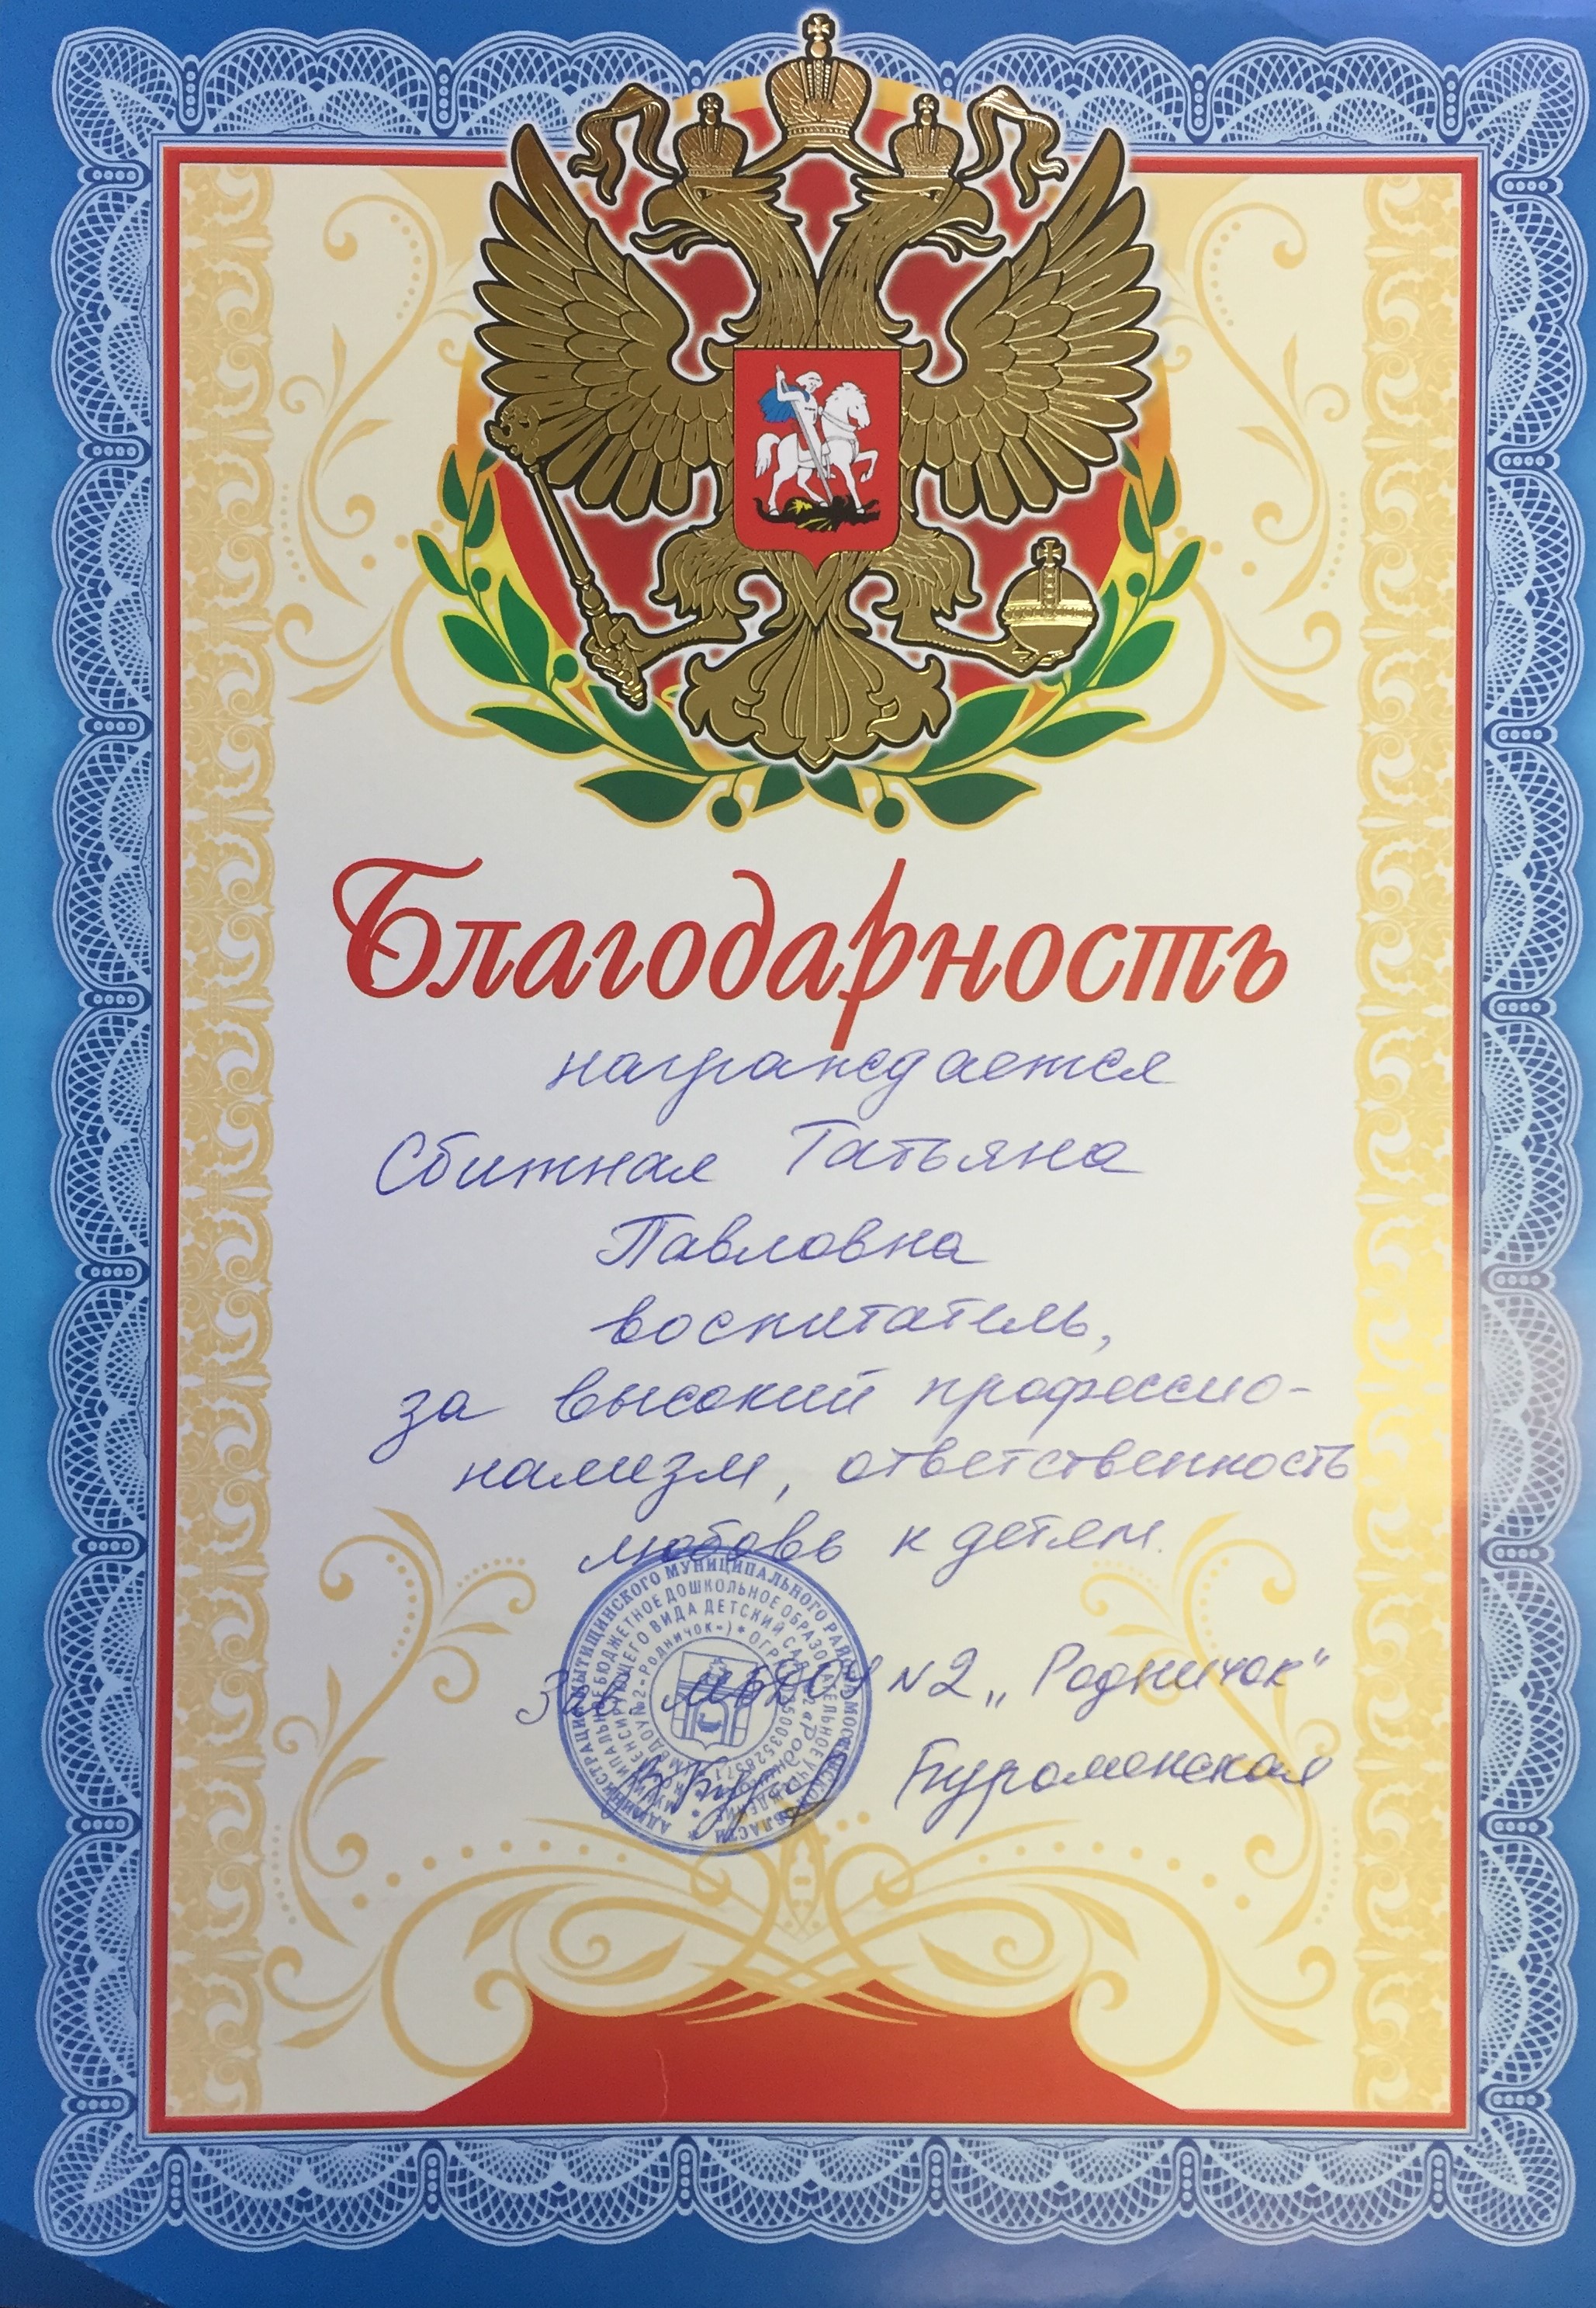 Благодарность
награждается
Сбитная Татьяна
Павловна
воспитатель,
за высокий профессио-
нализм, ответственность
любовь к детям.
АДМИНИСТРАЦИЯ МЫТИЩИНСКОГО МУНИЦИПАЛЬНОГО РАЙОНА МОСКОВСКОЙ ОБЛАСТИ
МУНИЦИПАЛЬНОЕ БЮДЖЕТНОЕ ДОШКОЛЬНОЕ ОБРАЗОВАТЕЛЬНОЕ УЧРЕЖДЕНИЕ
ВИДА ДЕТСКИЙ САД №2 «Родничок»
(МБДОУ №2 «Родничок») * ОГРН
Зав. МБДОУ №2 „Родничок"
Буроменская